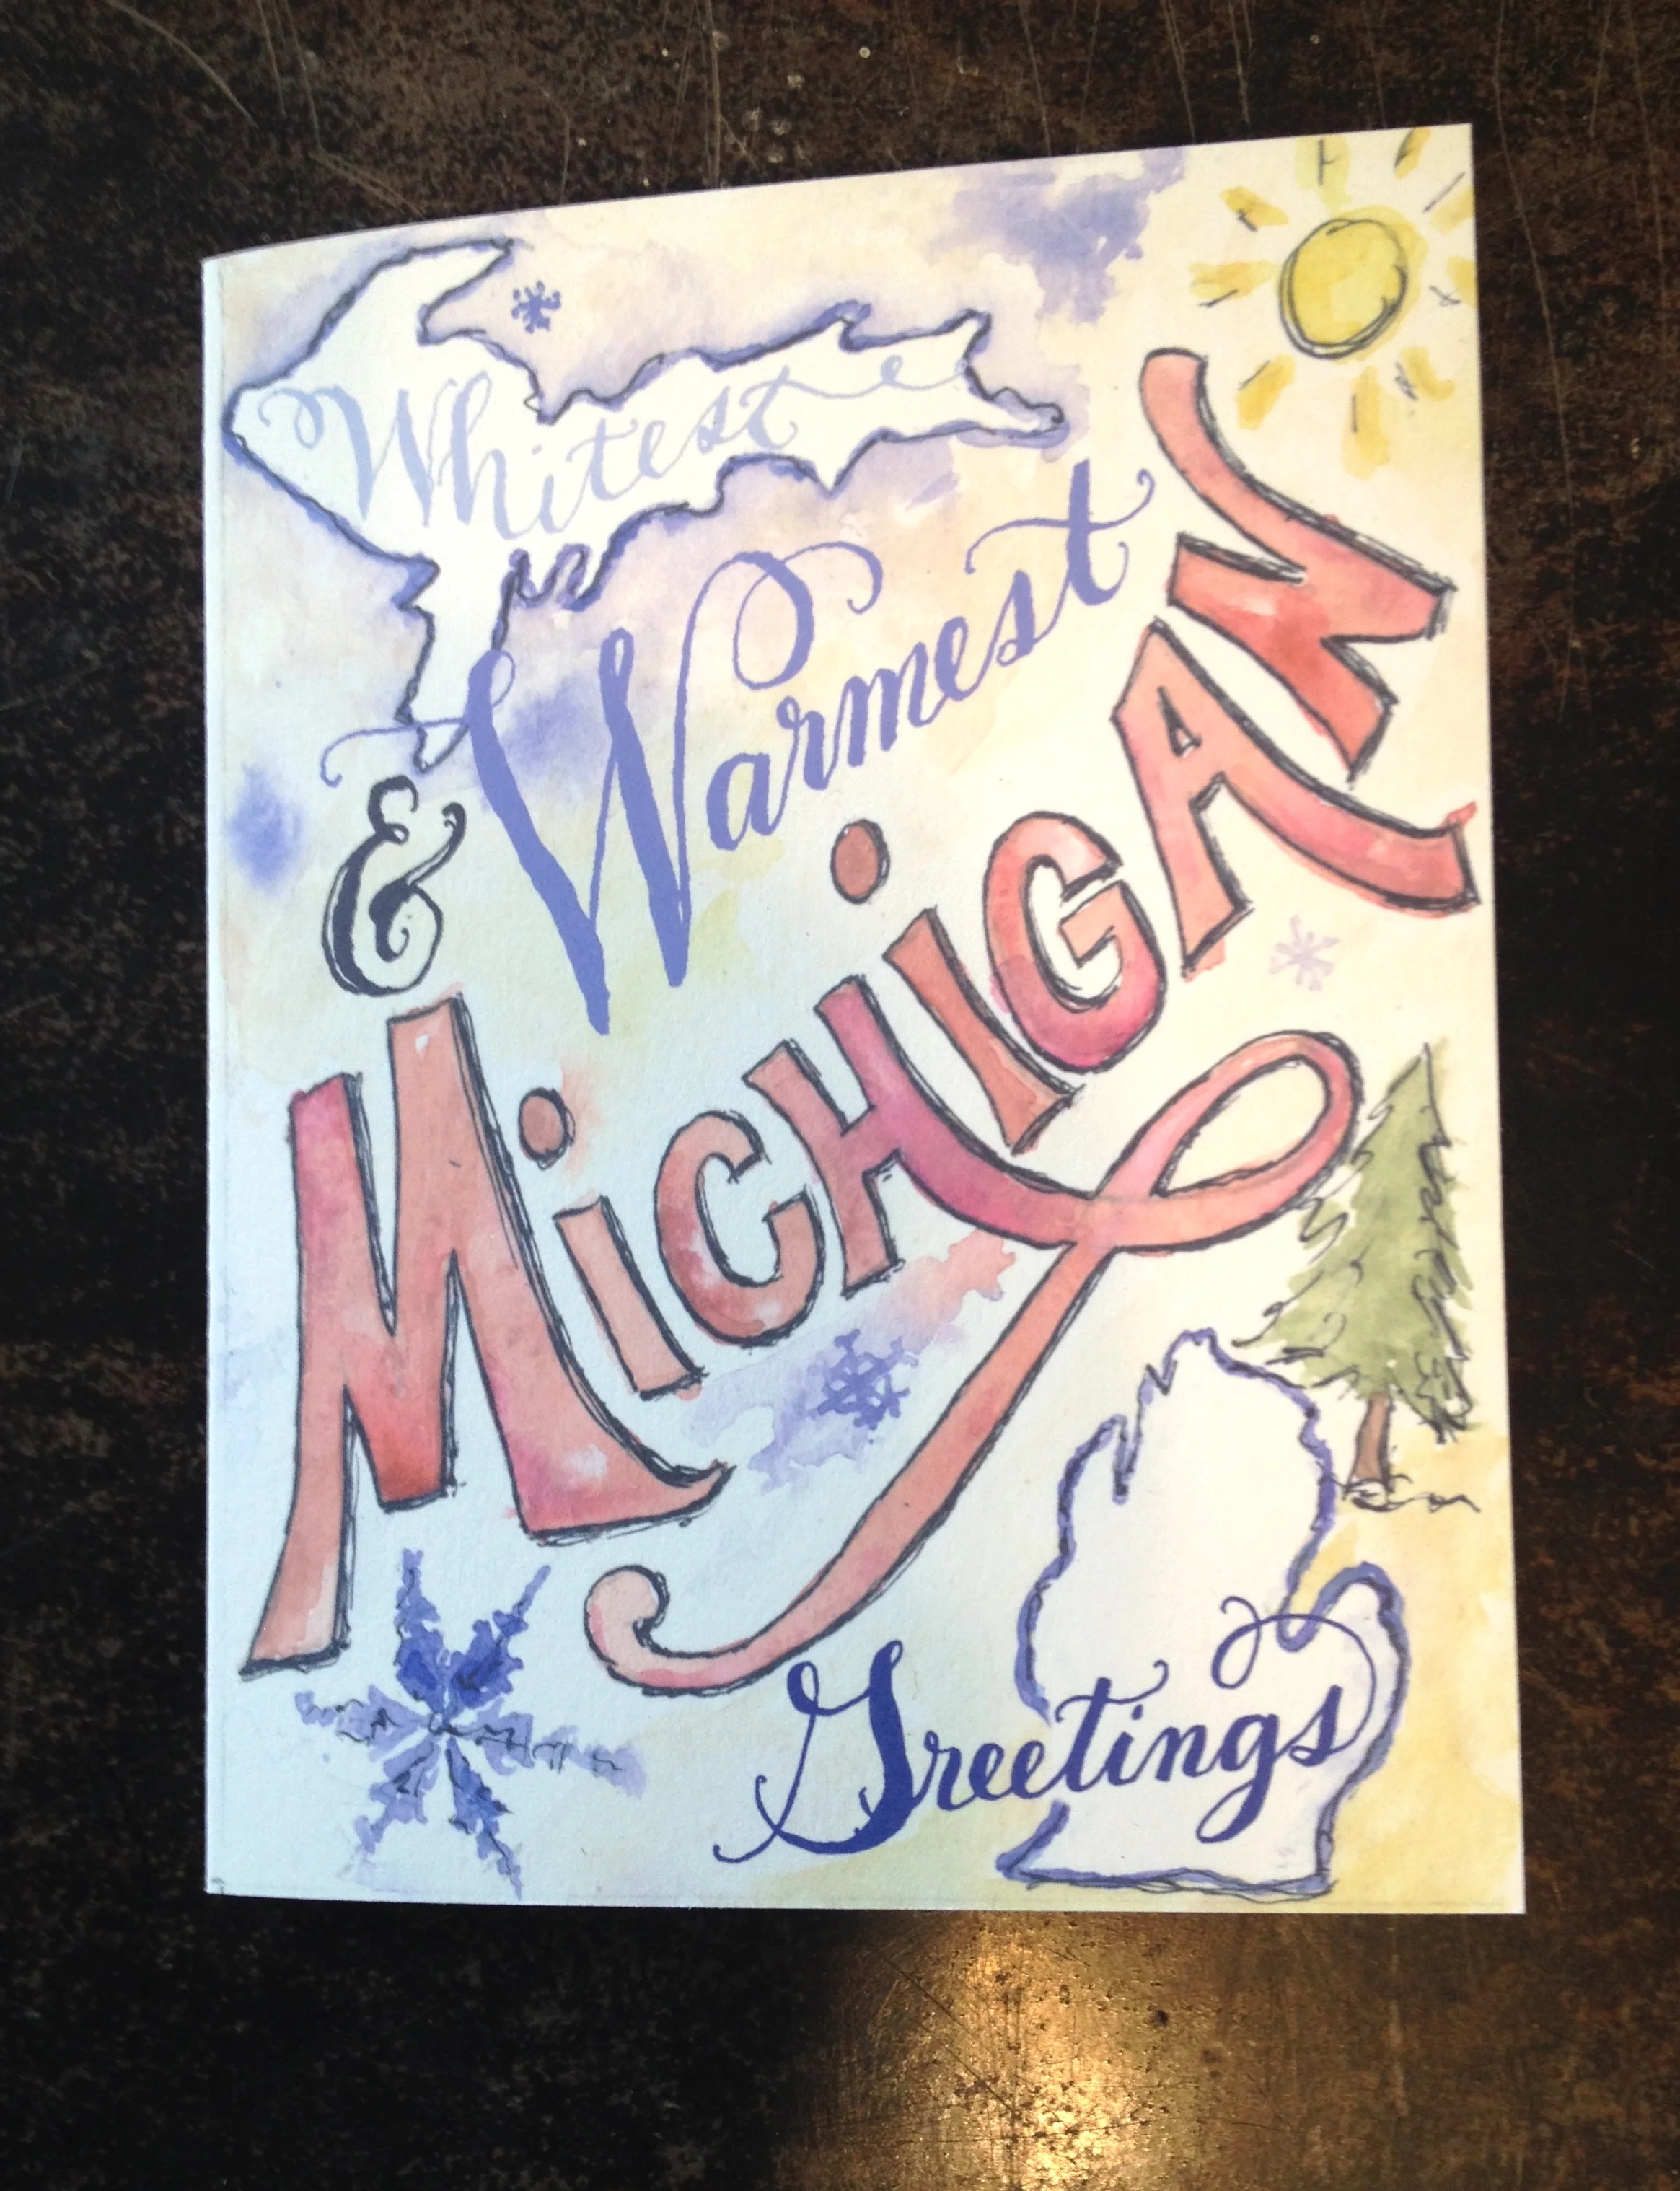 Whitest
& Warmest
MiCHiGAN
Greetings